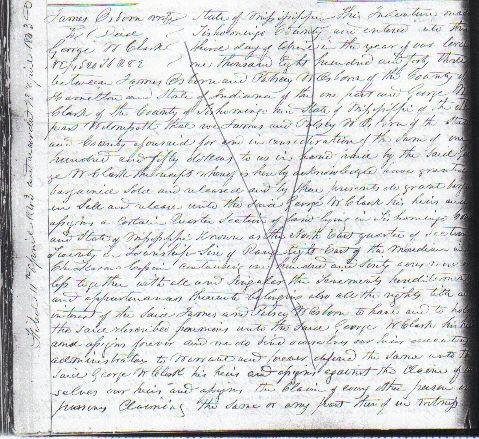 James Osborn wife } State of Mississippi This Indenture made
To { Deed } Tishomingo County and entered into this
George W Clark } three day of April in the year of our Lord
one thousand eight hundred and forty three
between James Osborn and Patsey W Osborn of the County of
Hamilton and State of Indiana of the one part and George W
Clark of the County of Tishomingo and State of Mississippi of the other
part Witnesseth that we James and Patsey W Osborn of the State
and County aforesaid for and in consideration of the sum of one
hundred and fifty dollars to us in hand paid by the said Geor
ge W Clark the receipt whereof is hereby acknowledged have granted
bargained Sold and released and by these presents do grant barga
in Sell and release unto the said George W Clark his heirs and
assigns a certain Quarter Section of land lying in Tishomingo County
and State of Mississippi Known as the North East quarter of Section
twenty in Township Six of Range Eight East of the Meridian
Chickasaw Cession Containing one hundred and sixty acres more or
less together with all and singular the tenements hereditaments
and appurtenances thereunto belonging also all the right title and
interest of the said James and Patsey W Osborn to have and to hold
the said described premises unto the said George W Clark his heirs
and assigns forever and we do bind ourselves our heirs executors
administrators to Warrant and forever defend the same unto the
said George W Clark his heirs and assigns against the Claims of our
selves our heirs and assigns the Claim of every other person or
persons Claiming the same or any part thereof in witness